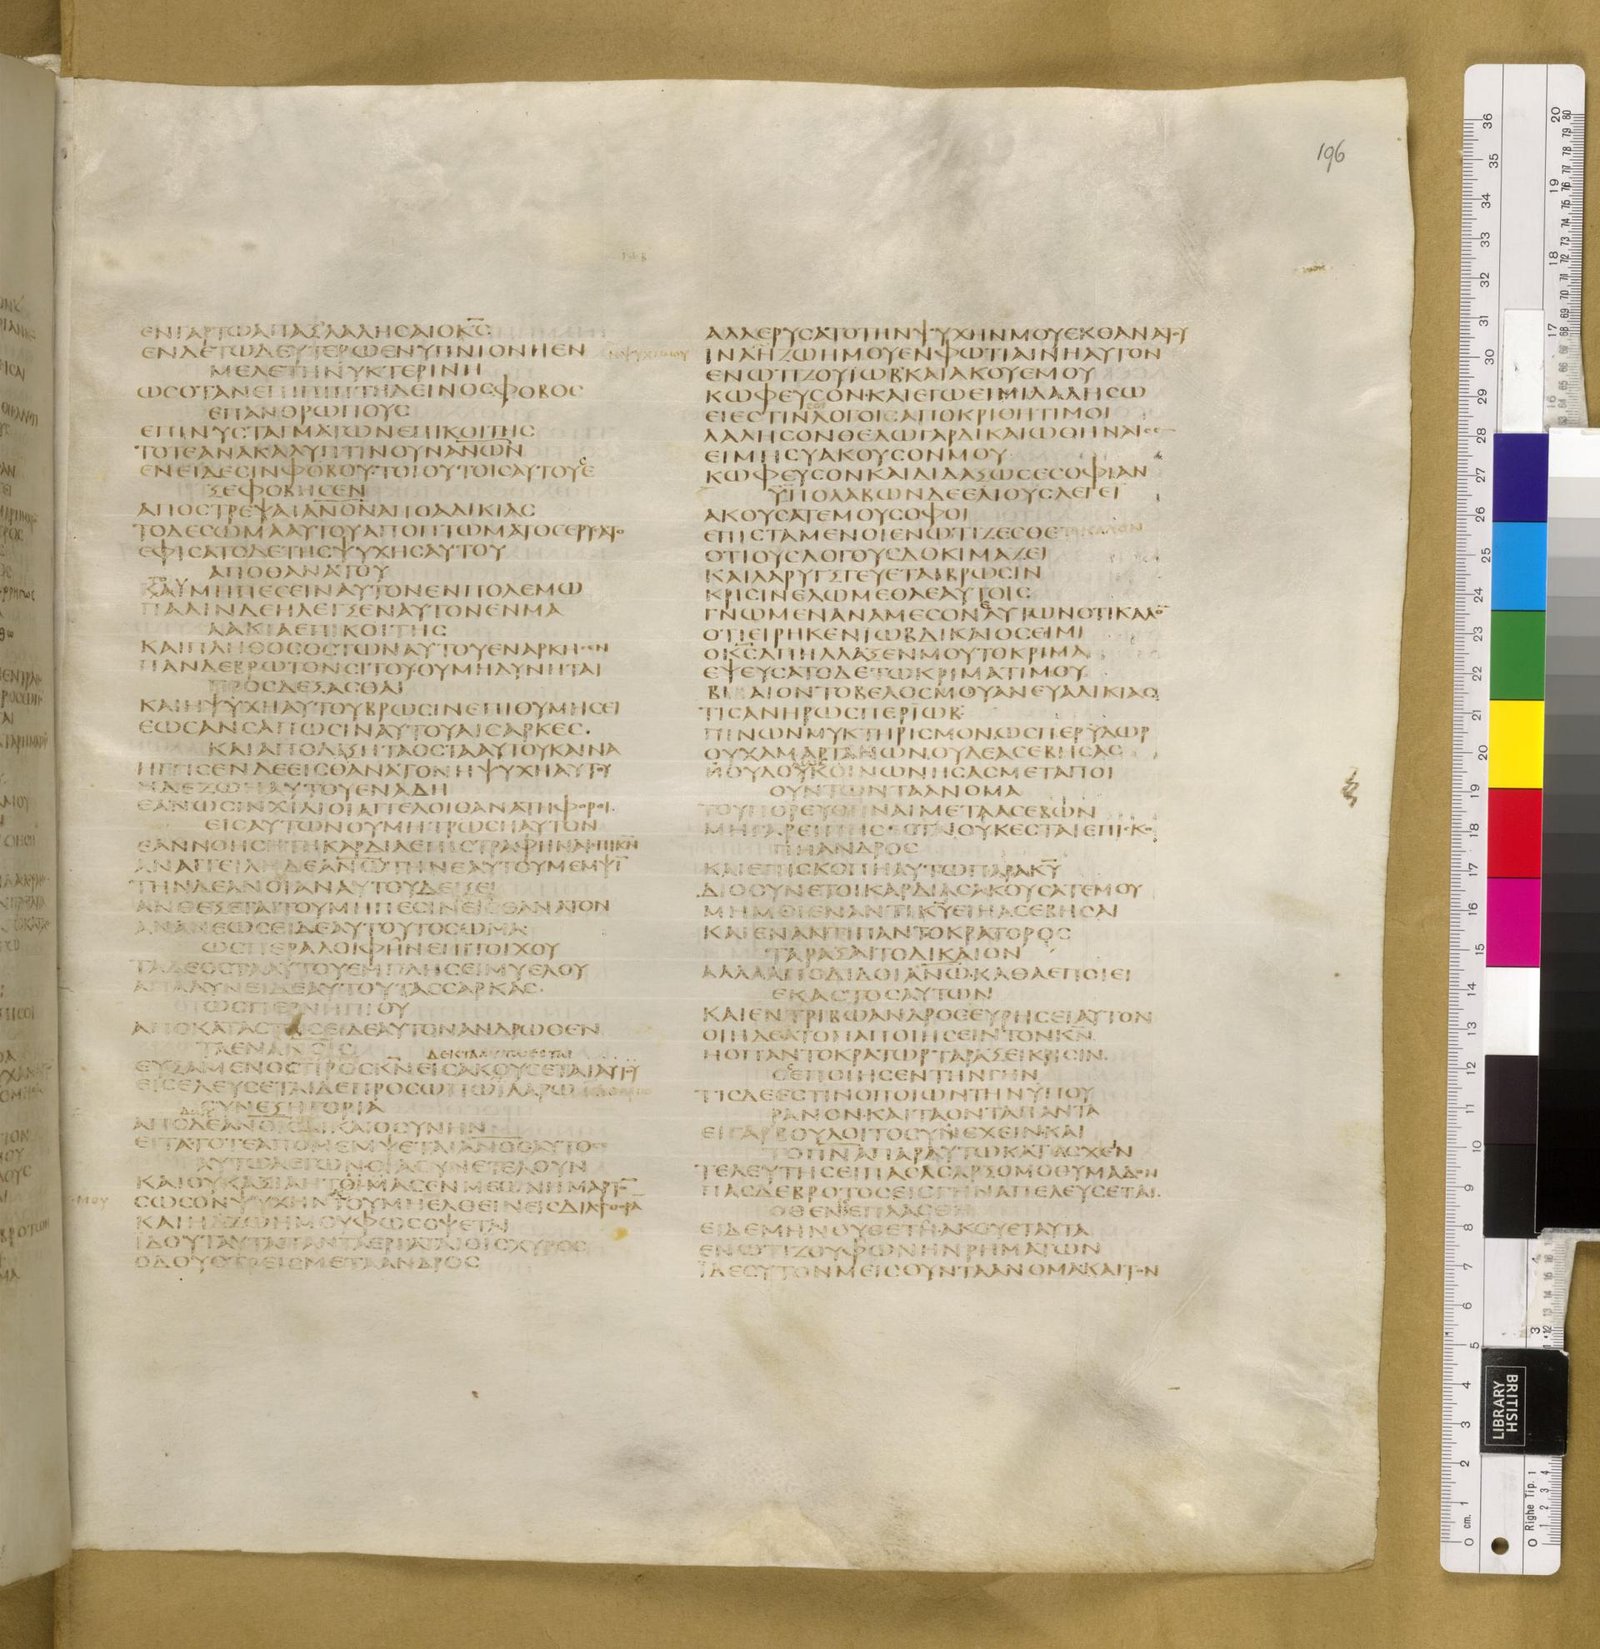 196
ΕΝΓΑΡΤΩΑΠΑΞΛΑΛΗCΑΙΟΚC
ΕΝΔΕΤΩΔΕΥΤΕΡΩΕΝΥΠΝΙΟΝΗΕΝ
ΜΕΛΕΤΗΝΥΚΤΕΡΙΝΗ
ΩCΟΤΑΝΕΠΙΠΙΠΤΗΔΕΙΝΟCΦΟΒΟC
ΕΠΑΝΘΡΩΠΟΥC
ΕΠΙΝΥCΤΑΓΜΑΤΩΝΕΠΙΚΟΙΤΗC
ΤΟΤΕΑΝΑΚΑΛΥΠΤΙΝΟΥΝΑΝΩΝ
ΕΝΕΙΔΕCΙΝΦΟΒΟΥΤΟΙΟΥΤΟΙCΑΥΤΟΥC
ΞΕΦΟΒΗCΕΝ
ΑΠΟCΤΡΕΨΑΙΑΝΟΝΑΠΟΑΔΙΚΙΑC
ΤΟΔΕCΩΜΑΑΥΤΟΥΑΠΟΠΤΩΜΑΤΟCΕΡΥCΑΤΟ
ΕΦΙCΑΤΟΔΕΤΗCΨΥΧΗCΑΥΤΟΥ
ΑΠΟΘΑΝΑΤΟΥ
ΚΑΙΜΗΠΕCΕΙΝΑΥΤΟΝΕΝΠΟΛΕΜΩ
ΠΑΛΙΝΔΕΗΛΕΓΞΕΝΑΥΤΟΝΕΝΜΑ
ΛΑΚΙΑΕΠΙΚΟΙΤΗC
ΚΑΙΠΛΗΘΟCΟCΤΩΝΑΥΤΟΥΕΝΑΡΚΗCΕΝ
ΠΑΝΔΕΒΡΩΤΟΝCΙΤΟΥΟΥΜΗΔΥΝΗΤΑΙ
ΠΡΟCΔΕΞΑCΘΑΙ
ΚΑΙΗΨΥΧΗΑΥΤΟΥΒΡΩCΙΝΕΠΙΘΥΜΗCΕΙ
ΕΩCΑΝCΑΠΩCΙΝΑΥΤΟΥΑΙCΑΡΚΕC
ΚΑΙΑΠΟΔΙΞΗΤΑΟCΤΑΑΥΤΟΥΚΑΙΝΑ
ΗΓΓΙCΕΝΔΕΕΙCΘΑΝΑΤΟΝΗΨΥΧΗΑΥΤΟΥ
ΗΔΕΖΩΗΑΥΤΟΥΕΝΑΔΗ
ΕΑΝΩCΙΝΧΙΛΙΟΙΑΓΓΕΛΟΙΘΑΝΑΤΗΦΟΡΟΙ
ΕΙCΑΥΤΩΝΟΥΜΗΤΡΩCΗΑΥΤΟΝ
ΕΑΝΝΟΗCΗΤΗΚΑΡΔΙΑΕΠΙCΤΡΑΦΗΝΑΙΠΡΟCΚΝ
ΑΝΑΓΓΕΙΛΗΔΕΑΝΩΤΗΝΕΑΥΤΟΥΜΕΜΨΙ
ΤΗΝΔΕΑΝΟΙΑΝΑΥΤΟΥΔΕΙΞΕΙ
ΑΝΘΕΞΕΤΑΙΤΟΥΜΗΠΕCΙΝΕΙCΘΑΝΑΤΟΝ
ΑΝΑΝΕΩCΕΙΔΕΑΥΤΟΥΤΟCΩΜΑ
ΩCΠΕΡΑΛΟΙΦΗΝΕΠΙΤΟΙΧΟΥ
ΤΑΔΕΟCΤΑΑΥΤΟΥΕΜΠΛΗCΕΙΜΥΕΛΟΥ
ΑΠΑΛΥΝΕΙΔΕΑΥΤΟΥΤΑCCΑΡΚΑC
ΩCΠΕΡΝΗΠΙΟΥ
ΑΠΟΚΑΤΑCΤΗCΕΙΔΕΑΥΤΟΝΑΝΔΡΩΘΕΝ
ΤΑΕΝΑΝΟΙC
ΕΥΞΑΜΕΝΟCΠΡΟCΚΝΕΙCΑΚΟΥCΕΤΑΙΑΥΤΟΥ
ΕΙCΕΛΕΥCΕΤΑΙΔΕΠΡΟCΩΠΩΙΛΑΡΩ
CΥΝΕΞΗΓΟΡΙΑ
ΑΠΟΔΕΑΝΟΙCΔΙΚΑΙΟCΥΝΗΝ
ΕΙΤΑΤΟΤΕΑΠΟΜΕΜΨΕΤΑΙΑΝΟCΑΥΤΟC
ΑΥΤΩΛΕΓΩΝΟΙΑCΥΝΕΤΕΛΟΥΝ
ΚΑΙΟΥΚΑΞΙΑΗΤΟΙΜΑCΕΝΜΕΩΝΗΜΑΡΤΟ
CΩCΟΝΨΥΧΗΝΤΟΥΜΗΕΛΘΕΙΝΕΙCΔΙΑΦΘΟΡΑ
ΚΑΙΗΖΩΗΜΟΥΦΩCΟΨΕΤΑΙ
ΙΔΟΥΤΑΥΤΑΠΑΝΤΑΕΡΓΑΤΑΙΟΙCΧΥΡΟC
ΟΔΟΥCΤΡΕΙCΜΕΤΑΑΝΔΡΟC
ΑΛΛΕΡΥCΑΤΟΤΗΝΨΥΧΗΝΜΟΥΕΚΘΑΝΑΤΟΥ
ΙΝΑΗΖΩΗΜΟΥΕΝΦΩΤΙΑΙΝΗΑΥΤΟΝ
ΕΝΩΤΙΖΟΥΙΩΒΚΑΙΑΚΟΥΕΜΟΥ
ΚΩΦΕΥCΟΝΚΑΙΕΓΩΕΙΜΙΛΑΛΗCΩ
ΕΙΕCΤΙΝΛΟΓΟΙCΑΠΟΚΡΙΘΗΤΙΜΟΙ
ΛΑΛΗCΟΝΘΕΛΩΓΑΡΔΙΚΑΙΩΘΗΝΑΙCΕ
ΕΙΜΗCΥΑΚΟΥCΟΝΜΟΥ
ΚΩΦΕΥCΟΝΚΑΙΔΙΔΑΞΩCΕCΟΦΙΑΝ
ΥΠΟΛΑΒΩΝΔΕΕΛΙΟΥCΛΕΓΕΙ
ΑΚΟΥCΑΤΕΜΟΥCΟΦΟΙ
ΕΠΙCΤΑΜΕΝΟΙΕΝΩΤΙΖΕCΘΕΤΟΚΑΛΟΝ
ΟΤΙΟΥCΛΟΓΟΥCΔΟΚΙΜΑΖΕΙ
ΚΑΙΛΑΡΥΓΞΓΕΥΕΤΑΙΒΡΩCΙΝ
ΚΡΙCΙΝΕΛΩΜΕΘΑΕΑΥΤΟΙC
ΓΝΩΜΕΝΑΝΑΜΕCΟΝΕΑΥΤΩΝΟΤΙΚΑΛΟ
ΟΤΙΕΙΡΗΚΕΝΙΩΒΔΙΚΑΙΟCΕΙΜΙ
ΟΚCΑΠΗΛΛΑΞΕΝΜΟΥΤΟΚΡΙΜΑ
ΕΨΕΥCΑΤΟΔΕΤΩΚΡΙΜΑΤΙΜΟΥ
ΒΙΑΙΟΝΤΟΒΕΛΟCΜΟΥΑΝΕΥΑΔΙΚΙΑC
ΤΙCΑΝΗΡΩCΠΕΡΙΩΒ
ΠΙΝΩΝΜΥΚΤΗΡΙCΜΟΝΩCΠΕΡΥΔΩΡ
ΟΥΧΑΜΑΡΤΑΝΩΝΟΥΔΕΑCΕΒΗCΑC
ΗΟΥΔΟΥΚΟΙΝΩΝΗCΑCΜΕΤΑΠΟΙ
ΟΥΝΤΩΝΤΑΑΝΟΜΑ
ΤΟΥΠΟΡΕΥΘΗΝΑΙΜΕΤΑΑCΕΒΩΝ
ΜΗΓΑΡΕΙΠΗCΟΤΙΟΥΚΕCΤΑΙΕΠΙCΚΟ
ΠΗΑΝΔΡΟC
ΚΑΙΕΠΙCΚΟΠΗΑΥΤΩΠΑΡΑΚΥ
ΔΙΟCΥΝΕΤΟΙΚΑΡΔΙΑCΑΚΟΥCΑΤΕΜΟΥ
ΜΗΜΟΙΕΝΑΝΤΙΚΥΕΙΗΑCΕΒΗCΑΙ
ΚΑΙΕΝΑΝΤΙΠΑΝΤΟΚΡΑΤΟΡΟC
ΤΑΡΑΞΑΙΤΟΔΙΚΑΙΟΝ
ΑΛΛΑΑΠΟΔΙΔΟΙΑΝΩΚΑΘΑΕΠΟΙΕΙ
ΕΚΑCΤΟCΑΥΤΩΝ
ΚΑΙΕΝΤΡΙΒΩΑΝΔΡΟCΕΥΡΗCΕΙΑΥΤΟΝ
ΟΙΗΔΕΑΤΟΠΑΠΟΙΗCΕΙΝΤΟΝΚΝ
ΗΟΠΑΝΤΟΚΡΑΤΩΡΤΑΡΑΞΕΙΚΡΙCΙΝ
ΟCΕΠΟΙΗCΕΝΤΗΝΓΗΝ
ΤΙCΔΕΕCΤΙΝΟΠΟΙΩΝΤΗΝΥΠΟΥ
ΡΑΝΟΝΚΑΙΤΑΟΝΤΑΠΑΝΤΑ
ΕΙΓΑΡΒΟΥΛΟΙΤΟCΥΝΕΧΕΙΝΚΑΙ
ΤΟΠΝΑΠΑΡΑΥΤΩΚΑΤΑCΧΕΙΝ
ΤΕΛΕΥΤΗCΕΙΠΑCΑCΑΡΞΟΜΟΘΥΜΑΔΟΝ
ΠΑCΔΕΒΡΟΤΟCΕΙCΓΗΝΑΠΕΛΕΥCΕΤΑΙ
ΟΘΕΝΕΠΛΑCΘΗ
ΕΙΔΕΜΗΝΟΥΘΕΤΗΑΚΟΥΕΤΑΥΤΑ
ΕΝΩΤΙΖΟΥΦΩΝΗΝΡΗΜΑΤΩΝ
ΙΔΕCΥΤΟΝΜΕΙCΟΥΝΤΑΑΝΟΜΑΚΑΙΤΟΝ
BRITISH
LIBRARY